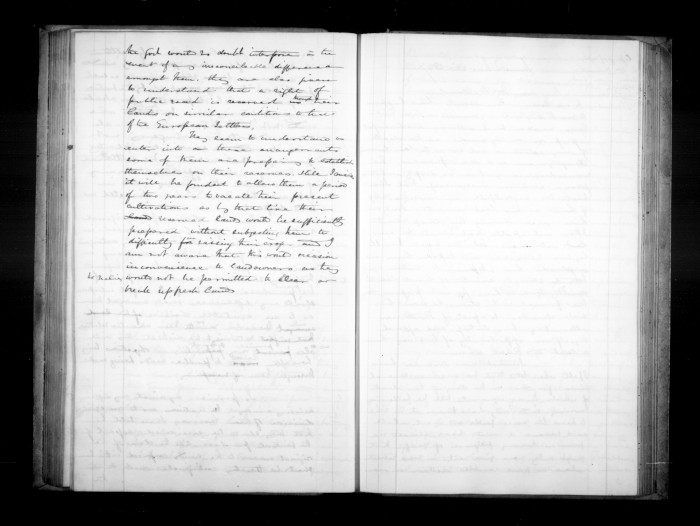 the Govt would no doubt interpose in the
event of any irreconcileable differences
amongst them. They are also given
to understand that a right of
public road is reserved thro' their
lands on similar conditions to those
of the European Settlers.
They seem to understand &
enter into these arrangements
some of them are preparing to establish
themselves on their reserves still I think
it will be prudent to allow them a period
of two years to vacate their present
cultivations as by that time their
reserved lands would be sufficiently
prepared without subjecting them to
difficulty for raising their crops and I
am not aware that this would occasion
inconvenience to landowners as they
would not be permitted to clear or
break up fresh lands